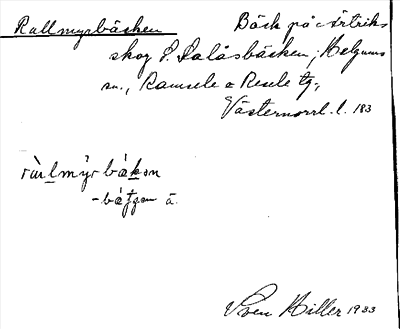 Rallmyrbäcken Bäck på Ärtriks
skog S. Salåsbäcken, Helgums
sn., Ramsele o Resele tg.,
Västernorrl. l. 183
-bäʃən ä.
Sven Hiller 1933